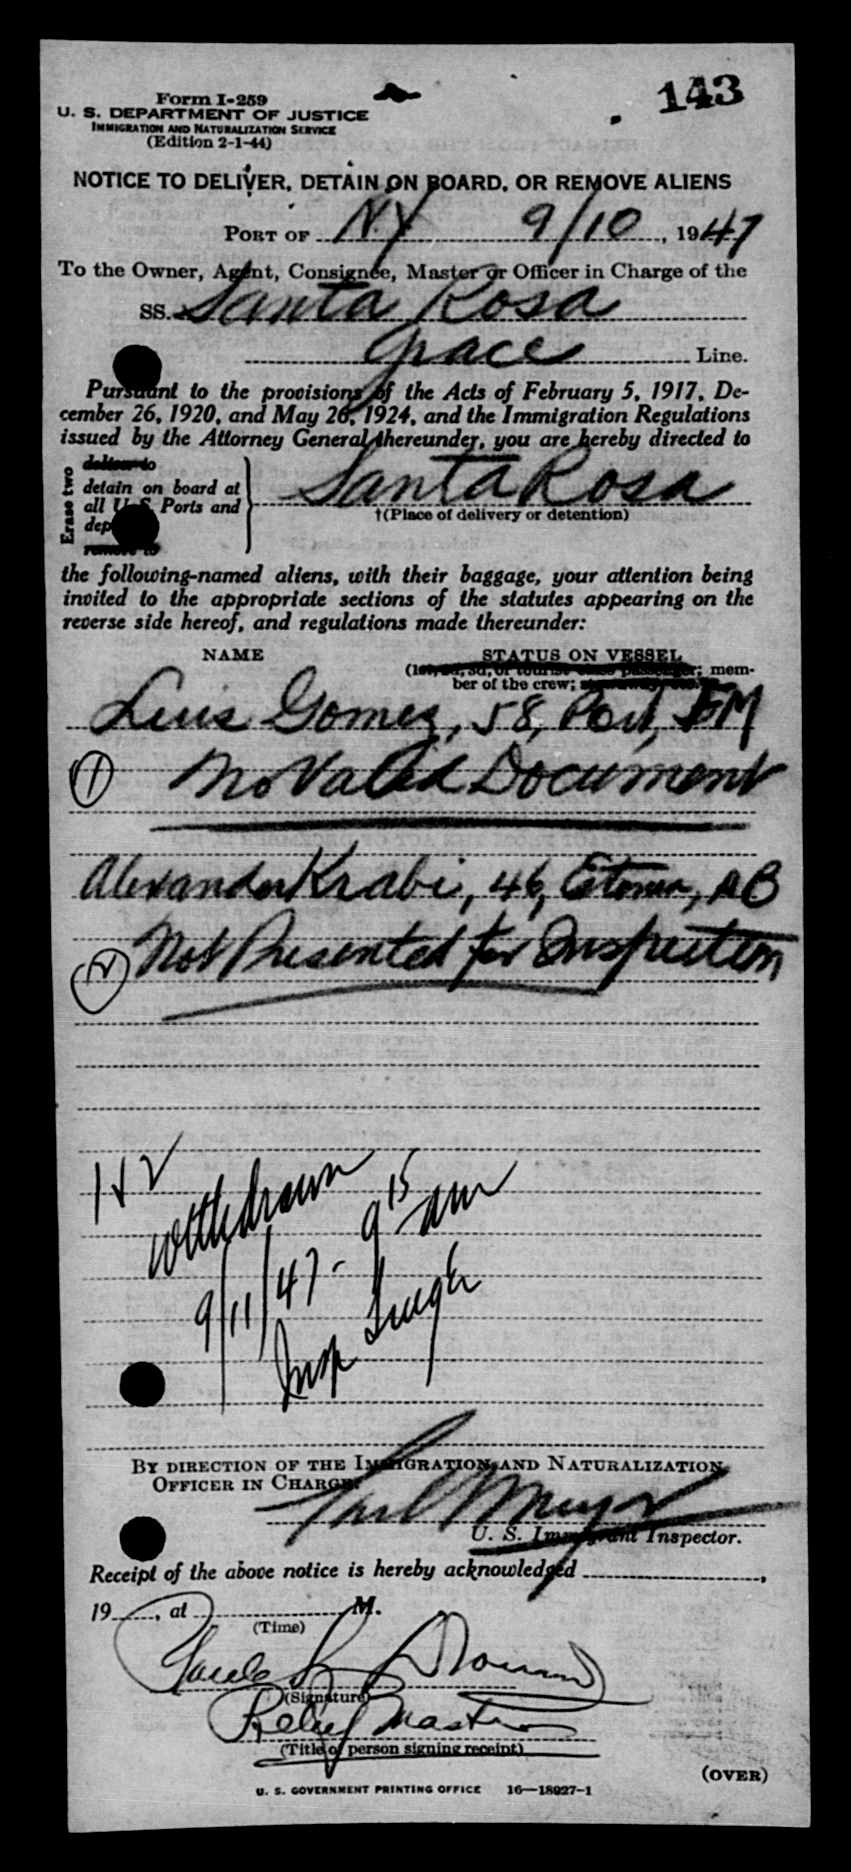 143
Form I-259
U. S. DEPARTMENT OF JUSTICE
IMMIGRATION AND NATURALIZATION SERVICE
(Edition 2-1-44)
NOTICE TO DELIVER, DETAIN ON BOARD, OR REMOVE ALIENS
PORT OF N.Y. 9/10, 1947
To the Owner, Agent, Consignee, Master or Officer in Charge of the
SS. Santa Rosa
Grace Line.
Pursuant to the provisions of the Acts of February 5, 1917, De-
cember 26, 1920, and May 26, 1924, and the Immigration Regulations
issued by the Attorney General thereunder, you are hereby directed to
Erase two
deliver to
detain on board at
all U. S. Ports and
dep
remove to
Santa Rosa
†(Place of delivery or detention)
the following-named aliens, with their baggage, your attention being
invited to the appropriate sections of the statutes appearing on the
reverse side hereof, and regulations made thereunder:
NAME STATUS ON VESSEL
(1st, 2d, 3d, or tourist class passenger; mem-
ber of the crew;
Luis Gomez, 58, Port, FM
1 No Valid Document
Alexander Krabi, 46, Estonia, AB
2 Not Presented for Inspection
1 & 2
withdrawn
9/11/47 - 9 15 am
Insp
BY DIRECTION OF THE IMMIGRATION AND NATURALIZATION
OFFICER IN CHARGE:
U. S. Immigrant Inspector.
Receipt of the above notice is hereby acknowledged ,
19 , at M.
(Time)
(Signature)
Relief Master
(Title of person signing receipt)
(OVER)
U. S. GOVERNMENT PRINTING OFFICE 16—18927-1